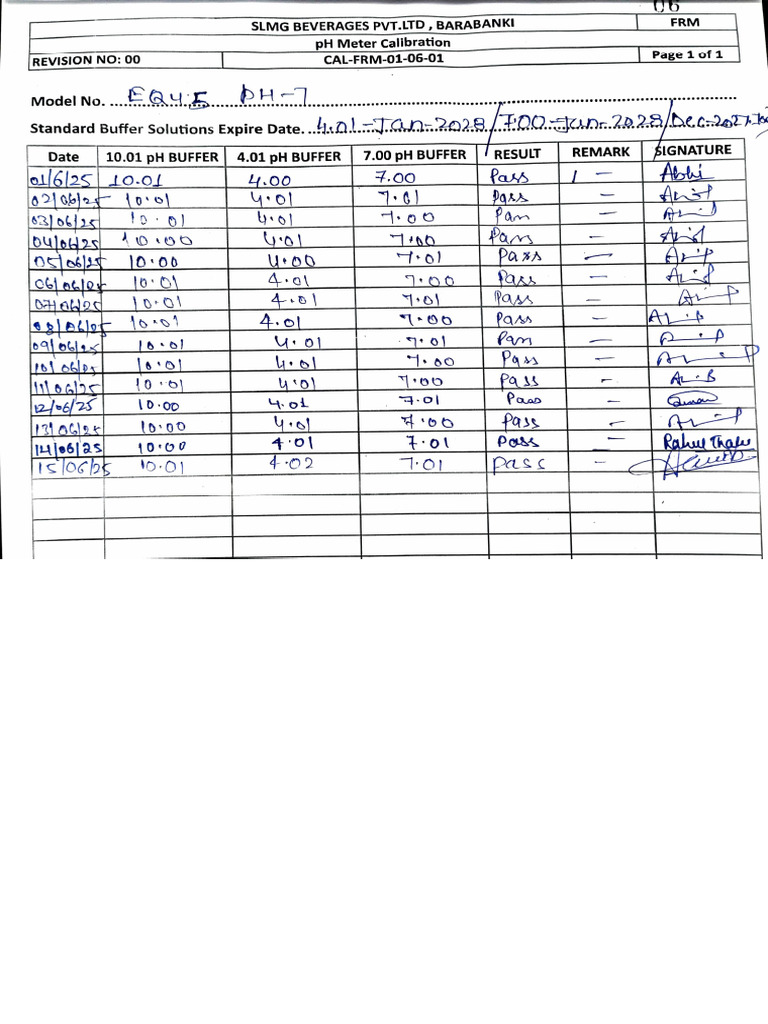 06
SLMG BEVERAGES PVT.LTD , BARABANKI FRM
pH Meter Calibration
REVISION NO: 00 CAL-FRM-01-06-01 Page 1 of 1
Model No. EQ45 PH-7
Standard Buffer Solutions Expire Date. 4.01-Jan-2028/7.00-Jan-2028/Dec-2027
Date 10.01 pH BUFFER 4.01 pH BUFFER 7.00 pH BUFFER RESULT REMARK SIGNATURE
01/6/25 10.01 4.00 7.00 Pass - Abhi
02/06/25 10.01 4.01 7.01 Pass -
03/06/25 10.01 4.01 7.00 Pass -
04/06/25 10.00 4.01 7.00 Pass -
05/06/25 10.00 4.00 7.01 Pass -
06/06/25 10.01 4.01 7.00 Pass -
07/06/25 10.01 4.01 7.01 Pass -
08/06/25 10.01 4.01 7.00 Pass -
09/06/25 10.01 4.01 7.01 Pass -
10/06/25 10.01 4.01 7.00 Pass -
11/06/25 10.01 4.01 7.00 Pass -
12/06/25 10.00 4.01 7.01 Pass -
13/06/25 10.00 4.01 7.00 Pass -
14/06/25 10.00 4.01 7.01 Pass - Rahul
15/06/25 10.01 4.02 7.01 Pass -